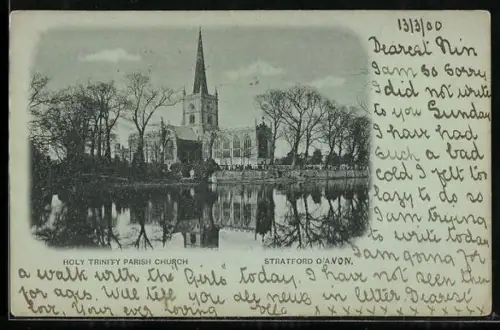 13/3/00
Dearest Nin
I am so sorry
I did not write
to you Sunday
I have had
such a bad
cold I felt too
lazy to do so
I am trying
to write today
I am going for
HOLY TRINITY PARISH CHURCH
STRATFORD O'AVON.
a walk with the "Girls" today. I have not seen them
for ages. Will tell you all news in letter. Dearest
love, Your ever loving
x x x x x x x x x